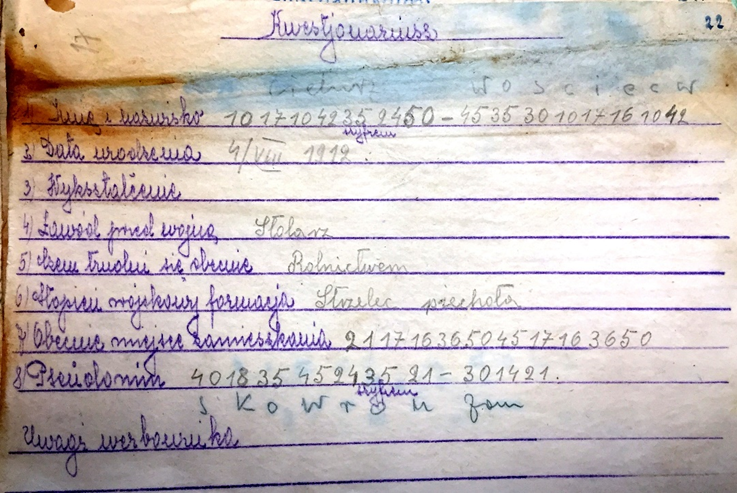 22
Kwestjonariusz
1) Imię i nazwisko 10 17 10 42 35 24 50 - 45 35 30 10 17 16 10 42
szyfrem
2) Data urodzenia 4/VIII 1912.
3) Wykształcenie
4) Zawód przed wojną Stolarz
5) Czem trudni się obecnie Rolnictwem
6) Stopień wojskowy formacja Strzelec piechota
7) Obecnie miejsce zamieszkania 21 17 16 36 50 45 17 16 36 50
8) Pseudonim 40 18 35 45 24 35 21 - 30 14 21.
szyfrem
S K O W r O N
Uwagi werbownika